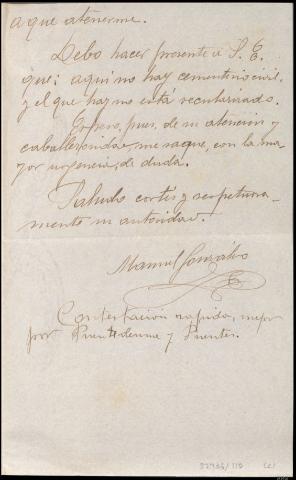 a que atenerme.
Debo hacer presente a S. E.
que: aquí no hay cementerio civil
y el que hay no está secularizado.
Espero, pues, de su atención y
caballerosidad me saque, con la ma-
yor urgencia, de duda.
Saludo cortés y respetuosa-
mente su autoridad.
Manuel González
Contestación rápida, mejor
por Puentedeume y Puentes.